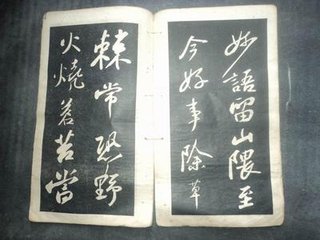 妙語留山隈至
今好事除草
棘常恐野
火燒苔苦嘗